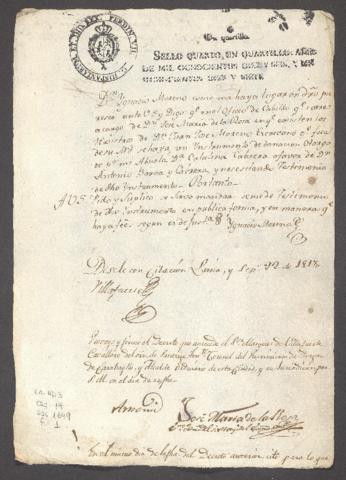 HISPANIARUM ET IND. REX FERDIN. VII
Un quartillo
SELLO QUARTO, UN QUARTILLO, AÑOS
DE MIL OCHOCIENTOS DIEZ Y SEIS, Y MIL
OCHOCIENTOS DIEZ Y SIETE
Dn. Ignacio Moreno como mas haya lugar en dro. pa
resco ante V.S. y Digo: qe. en el Oficio de Cabildo qe. corre
a cargo de Dn. José Maria de la Rosa en qe. existen los
Registros de Dn. Juan José Moreno Escrivano qe. fue
de su Md. se haya un Instrumento de donacion otorga
do pr. mi Abuela Da. Catalina Cabrera a favor de Dn.
Antonio Baroa y Cabrera, y necesitando Testimonio
de dho Instrumento. Por tanto
A V.S. Pido y Suplico se sirva mandar se me dé Testimonio
de dho Instrumento en publica forma, y en manera qe.
haya fee, segun es de justa. &
Ignacio Moreno
Desele con Citacion Lima, y Sepe. 22 de 1817
Villafuerte
Proveyó y firmó el Decreto que antecede el Sr. Marques de Villafuerte
Caballero del orn. de
y Alcalde Ordinario de esta Ciudad, y su Jurisdiccion por
S.M. en el dia de su fha.
Antemi
José Maria de la Rosa
En el mismo dia de la fha. del Decreto anterior cité para lo que